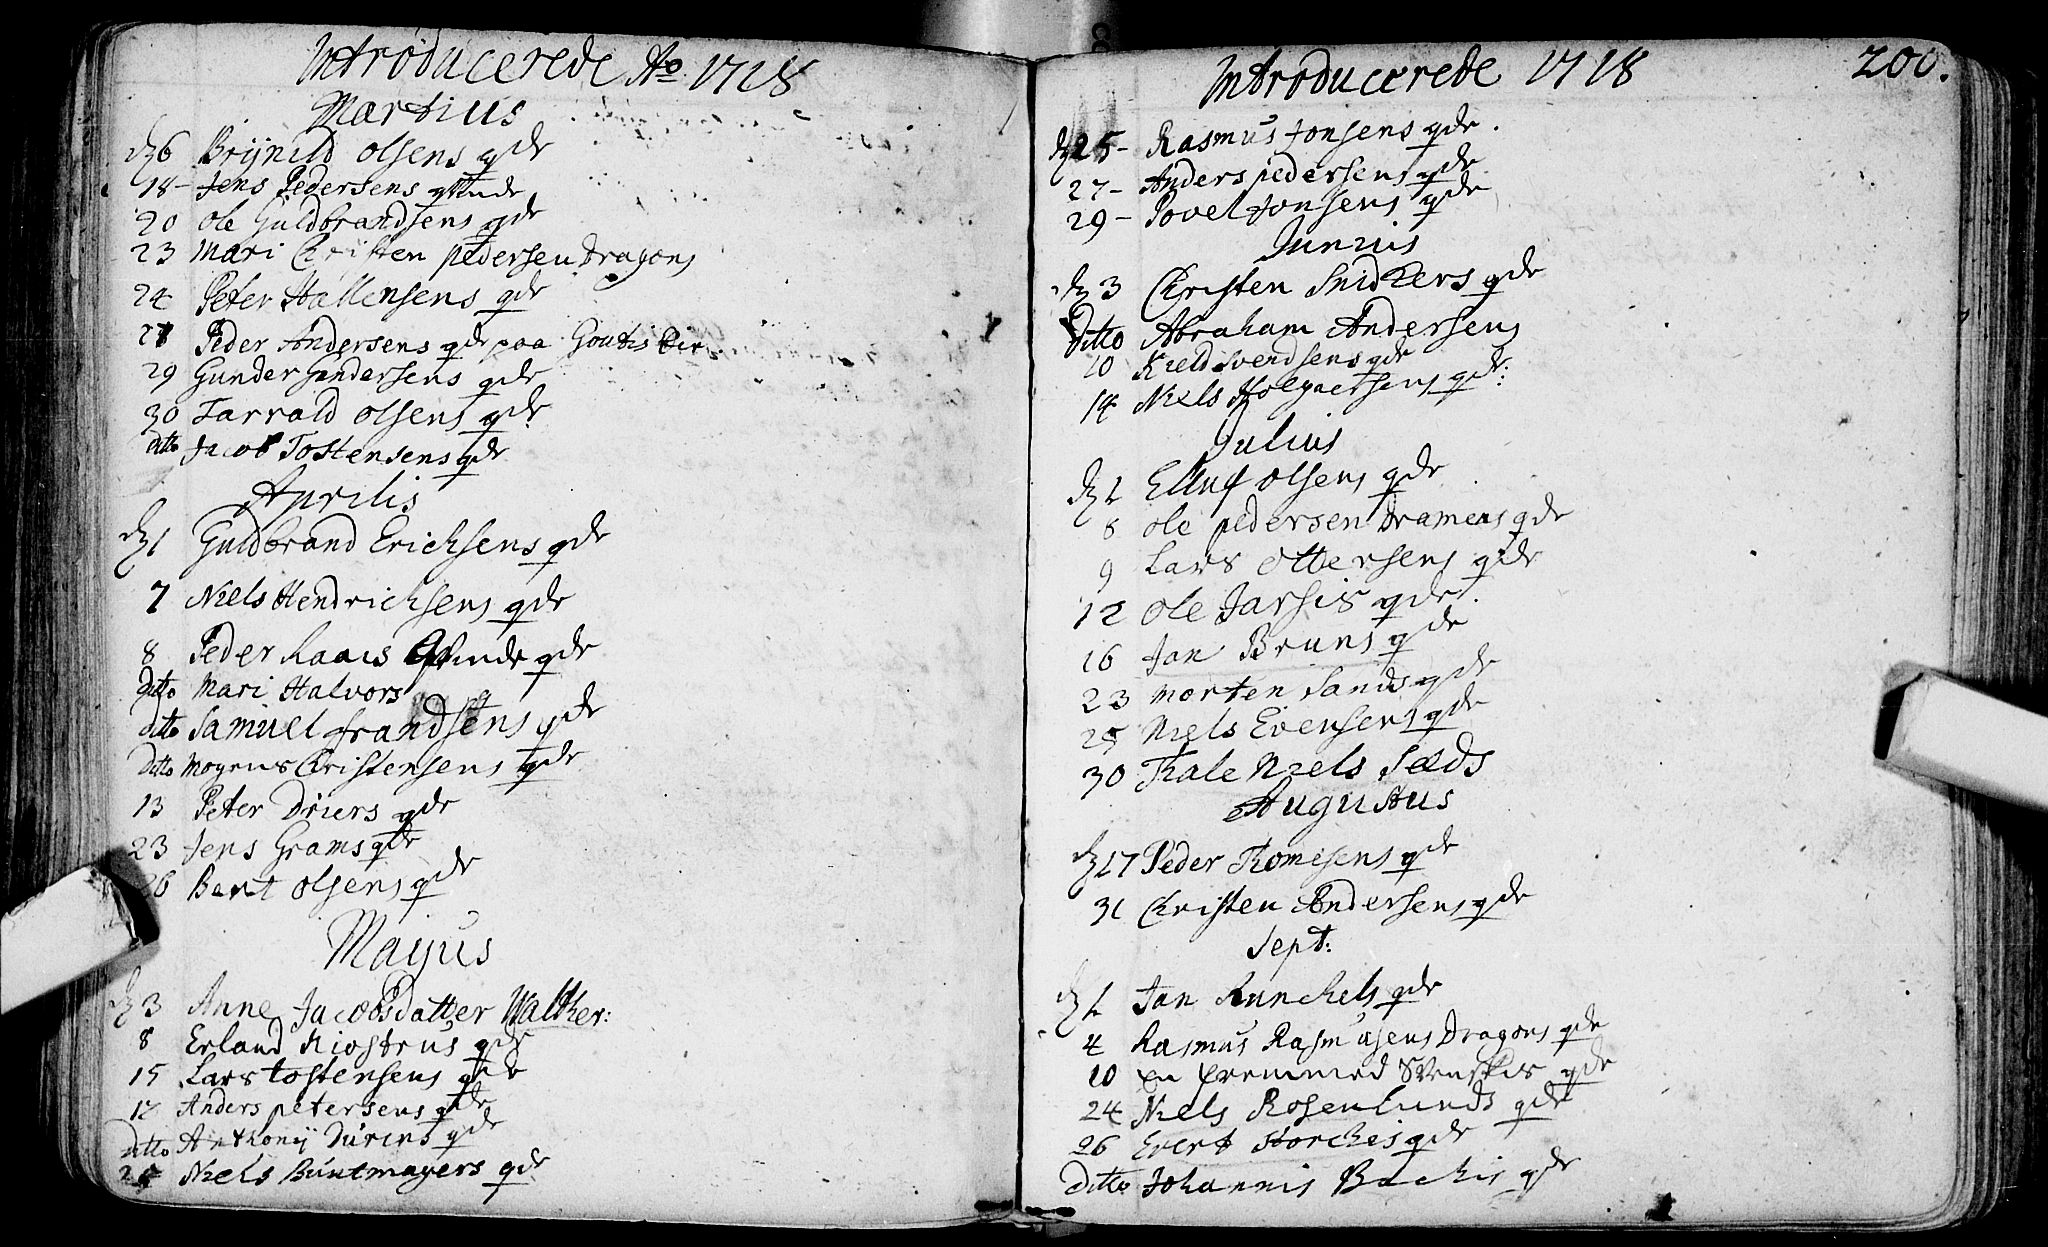 Introducerede Ao 1718
Martius
d 6 Brijnild Olsens qde
18 - Jens Pedersens qvinde
20 Ole Guldbrandsens qde
23 Mari Christen pedersen Dragons
24 Peter Hallensens qde
27 Peder Andersens qde paa
29 Gunder Gundersens qde
30 Tarrald Olsens qde
ditto Jacob Tostensens qde
Aprilis
d 1 Guldbrand Erichsens qde
7 Niels Hendrichsens qde
8 Peder qde
Ditto Mari Halvors
ditto Samuel frandsens qde
Ditto Mogens Christensens qde
13 Peter Driers qde
23 Jens Grams qde
26 Bent Olsens qde
Majus
d 3 Anne Jacobsdatter Walther:
8 Erland qde
15 Lars tostensens qde
17 Anders petersens qde
ditto Anthonij Durens qde
Niels Buntmagers qde
Introducerede 1718 200.
d 25 - Rasmus Jonsens qde.
27 - Anders pedersens qde
29 - Povel Jonsens qde
Junius
d 3 Christen Snidkers qde
Ditto Abraham Andersens
10 Kield Svendsens qde
14 Niels qde:
Julius
d 2 Elluf Olsens qde
8 Ole pedersen Dramens qde
9 Lars Ottersens qde
12 Ole qde.
16 Jan Bruns qde
23 Morten Sands qde
25 Niels Evensens qde
30 Niels
Augustus
d 17 Peder Thomesens qde
31 Christen Andersens qde
Sept:
d 2 Jan Runchels qde
4 Rasmus Rasmusens Dragons qde
10 En fremmed Svenskis qde
24 Niels Rosenlunds qde
26 Evert Storchis qde
Ditto Johannis Bachis qde